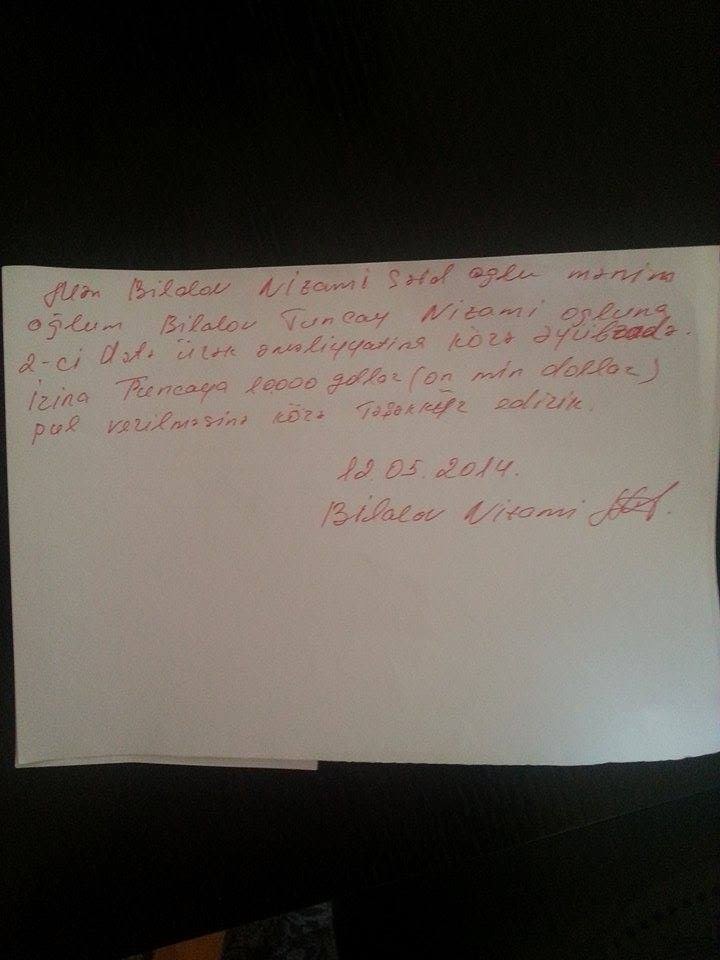 Mən Bilalov Nizami Səid oğlu mənim
oğlum Bilalov Tuncay Nizami oğluna
2-ci dəfə ürək əməliyyatına körə Əyübzadə
İrina Tuncaya 10000 dollar (on min dollar)
pul verilməsinə körə Təşəkkür edirik.
12.05.2014.
Bilalov Nizami